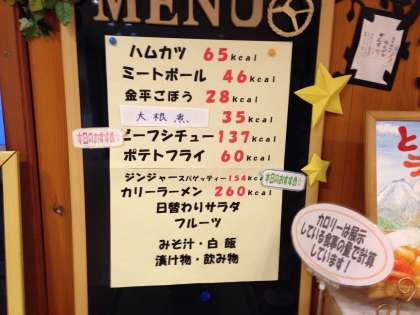 MENU
ハムカツ 65kcal
ミートボール 46kcal
金平ごぼう 28kcal
大根煮 35kcal
本日のおすすめ品☆
ビーフシチュー 137kcal
ポテトフライ 60kcal
ジンジャースパゲッティー 154kcal
本日のおすすめ品☆
カリーラーメン 260kcal
日替わりサラダ
フルーツ
みそ汁・白飯
漬け物・飲み物
カロリーは展示
している食事の量で計算
しています!
と